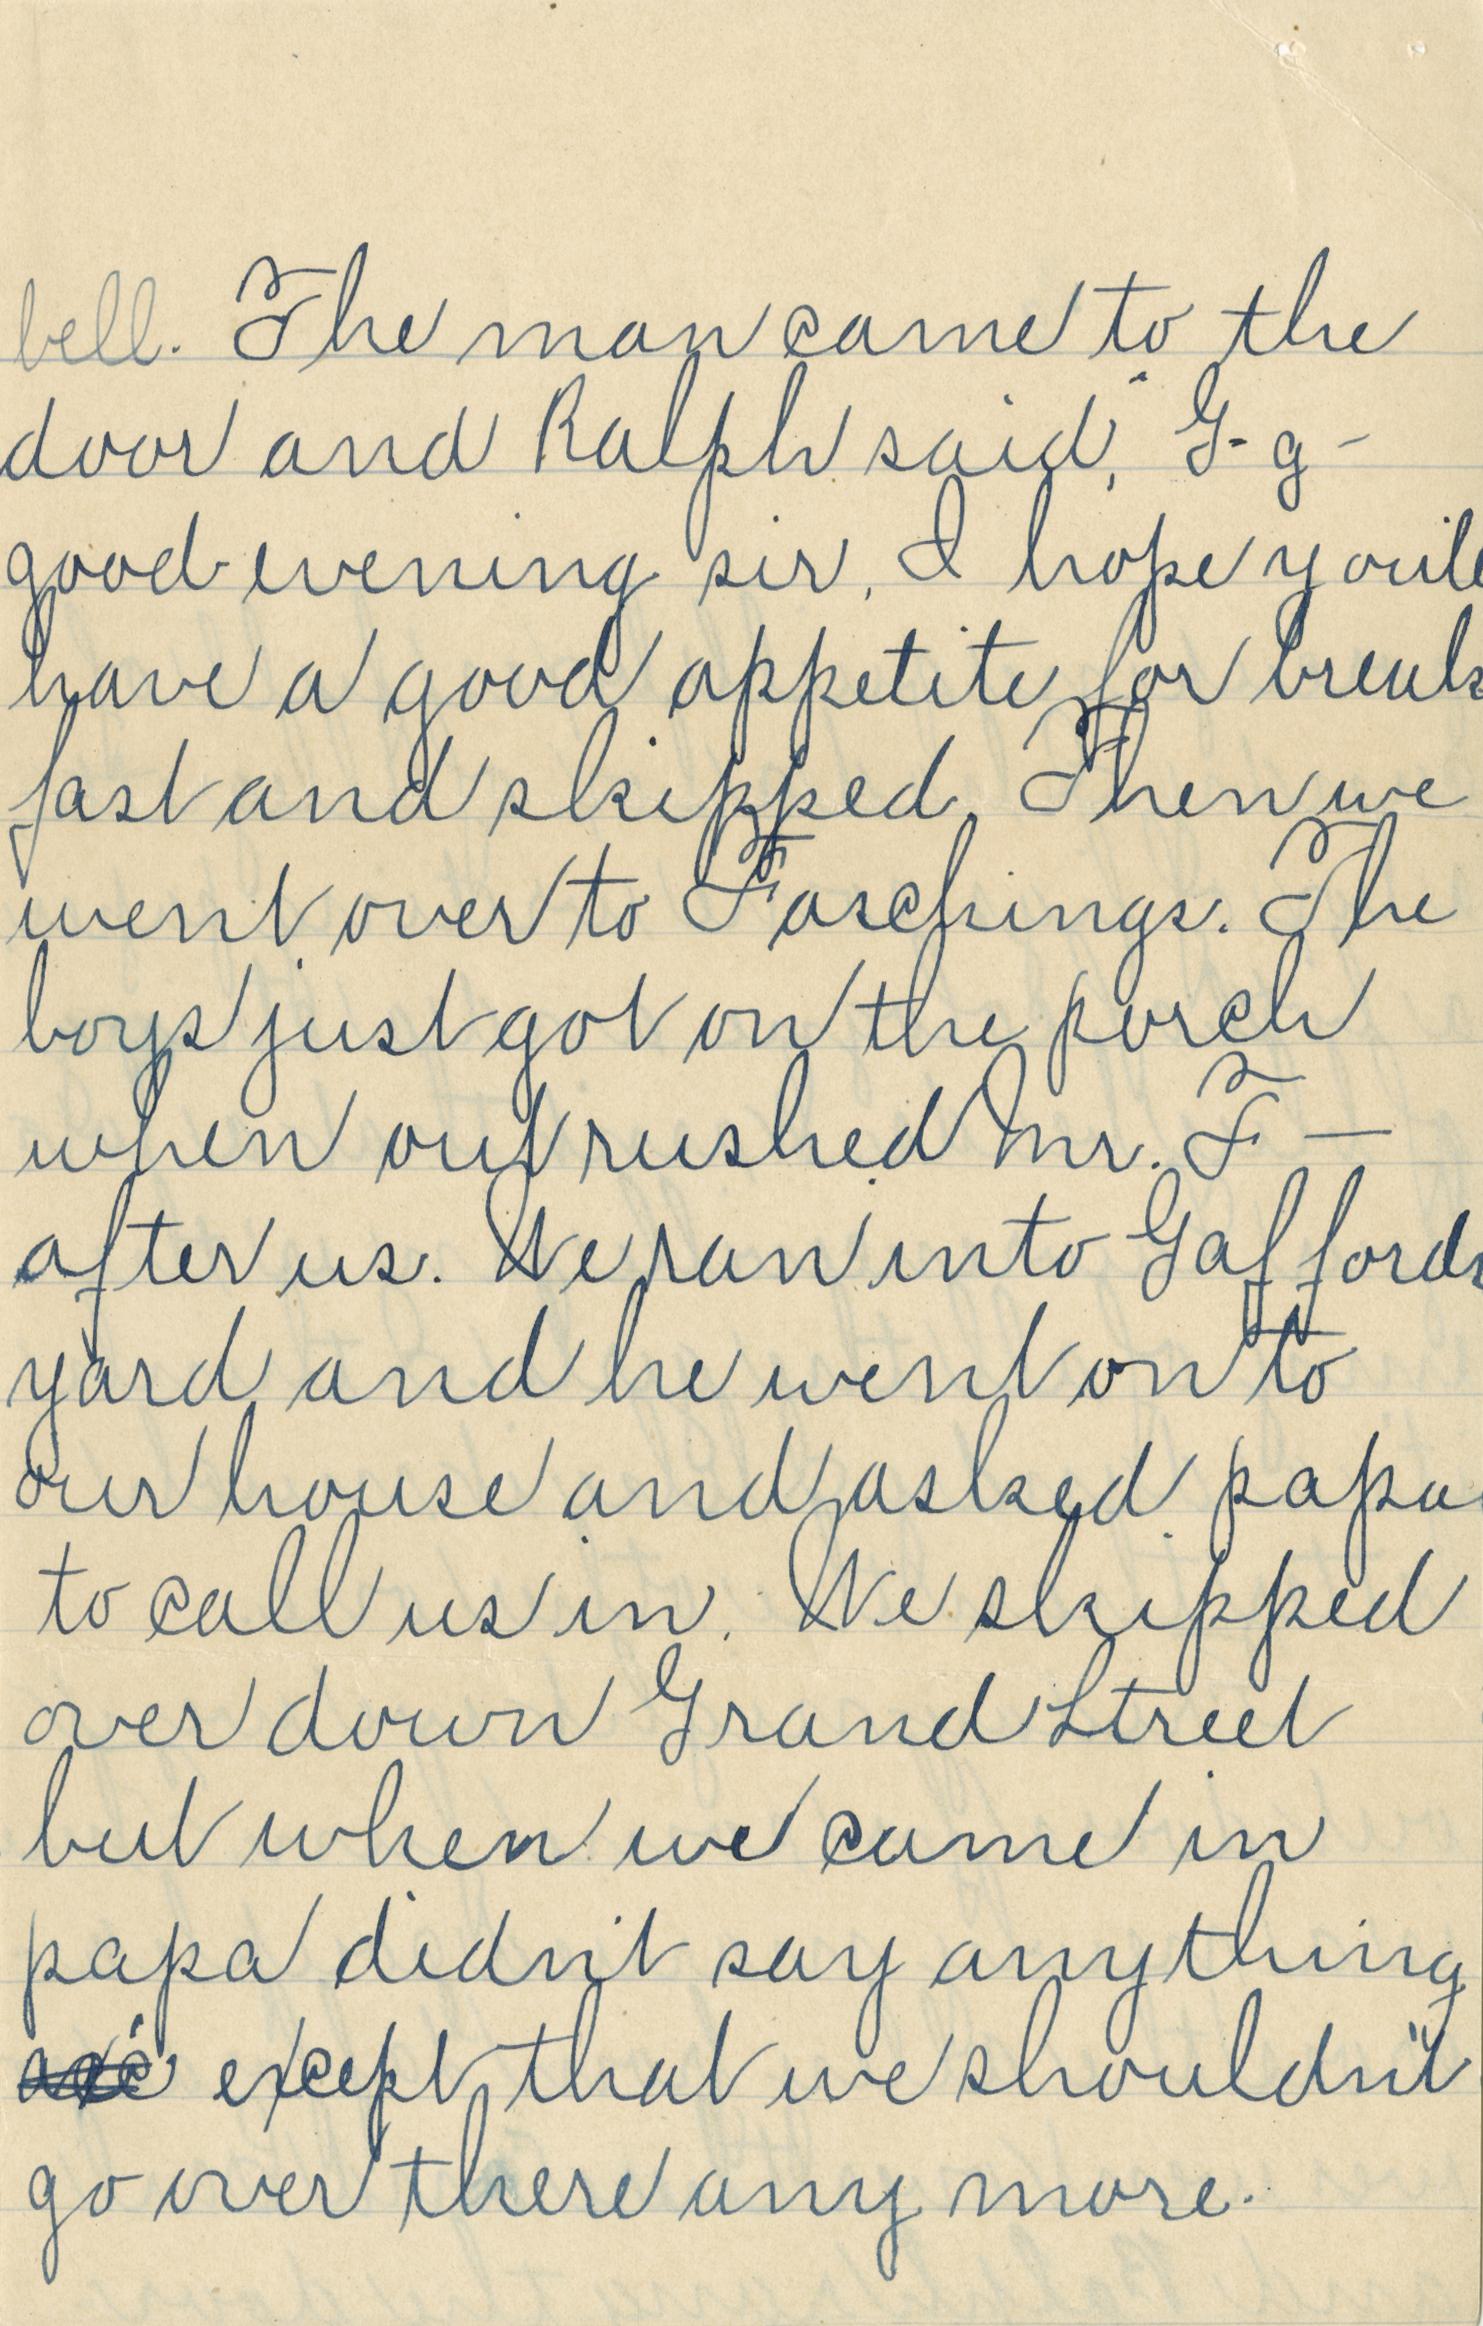 bell. The man came to the
door and Ralph said, "G-g-
good-evening sir, I hope you'll
have a good appetite for break
fast and skipped. Then we
went over to Faschings. The
boys just got on the porch
when out rushed Mr. F—
after us. We ran into Gaffords
yard and he went on to
our house and asked papa
to call us in. We skipped
over down Grand Street
but when we came in
papa didn't say anything
except that we shouldn't
go over there any more.